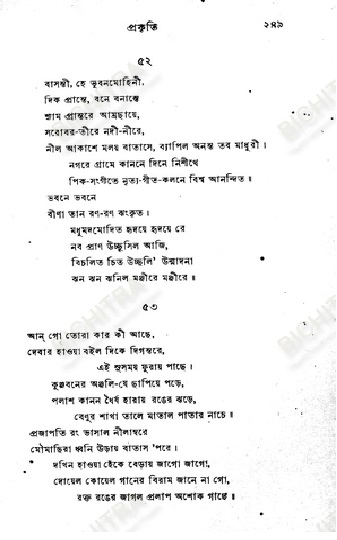 প্রকৃতি ২৪৯
৫২
বাসন্তী, হে ভুবনমোহিনী,
দিক প্রান্তে, বনে বনান্তে
শ্যাম প্রান্তরে আম্রছায়ে,
সরোবর-তীরে নদী-নীরে,
নীল আকাশে মলয় বাতাসে, ব্যাপিল অনন্ত তব মাধুরী।
নগরে গ্রামে কাননে দিনে নিশীথে
পিক-সংগীতে নৃত্য-গীত-কলনে বিশ্ব আনন্দিত।
ভবনে ভবনে
বীণা তান রণ-রণ ঝংকৃত।
মধুমদমোদিত হৃদয়ে হৃদয়ে রে
নব প্রাণ উচ্ছ্বসিল আজি,
বিচলিত চিত উচ্ছলি' উন্মাদনা
ঝন ঝন ঝনিল মঞ্জীরে মঞ্জীরে॥
৫৩
আন্ গো তোরা কার কী আছে,
দেবার হাওয়া বইল দিকে দিগন্তরে,
এই সুসময় ফুরায় পাছে।
কুঞ্জবনের অঞ্জলি-যে ছাপিয়ে পড়ে,
পলাশ কানন ধৈর্য হারায় রঙের ঝড়ে,
বেণুর শাখা তালে মাতাল পাতার নাচে।
প্রজাপতি রং ভাসাল নীলাম্বরে
মৌমাছিরা ধ্বনি উড়ায় বাতাস 'পরে।
দখিন হাওয়া হেঁকে বেড়ায় জাগো জাগো,
দোয়েল কোয়েল গানের বিরাম জানে না গো,
রক্ত রঙের জাগল প্রলাপ অশোক গাছে॥